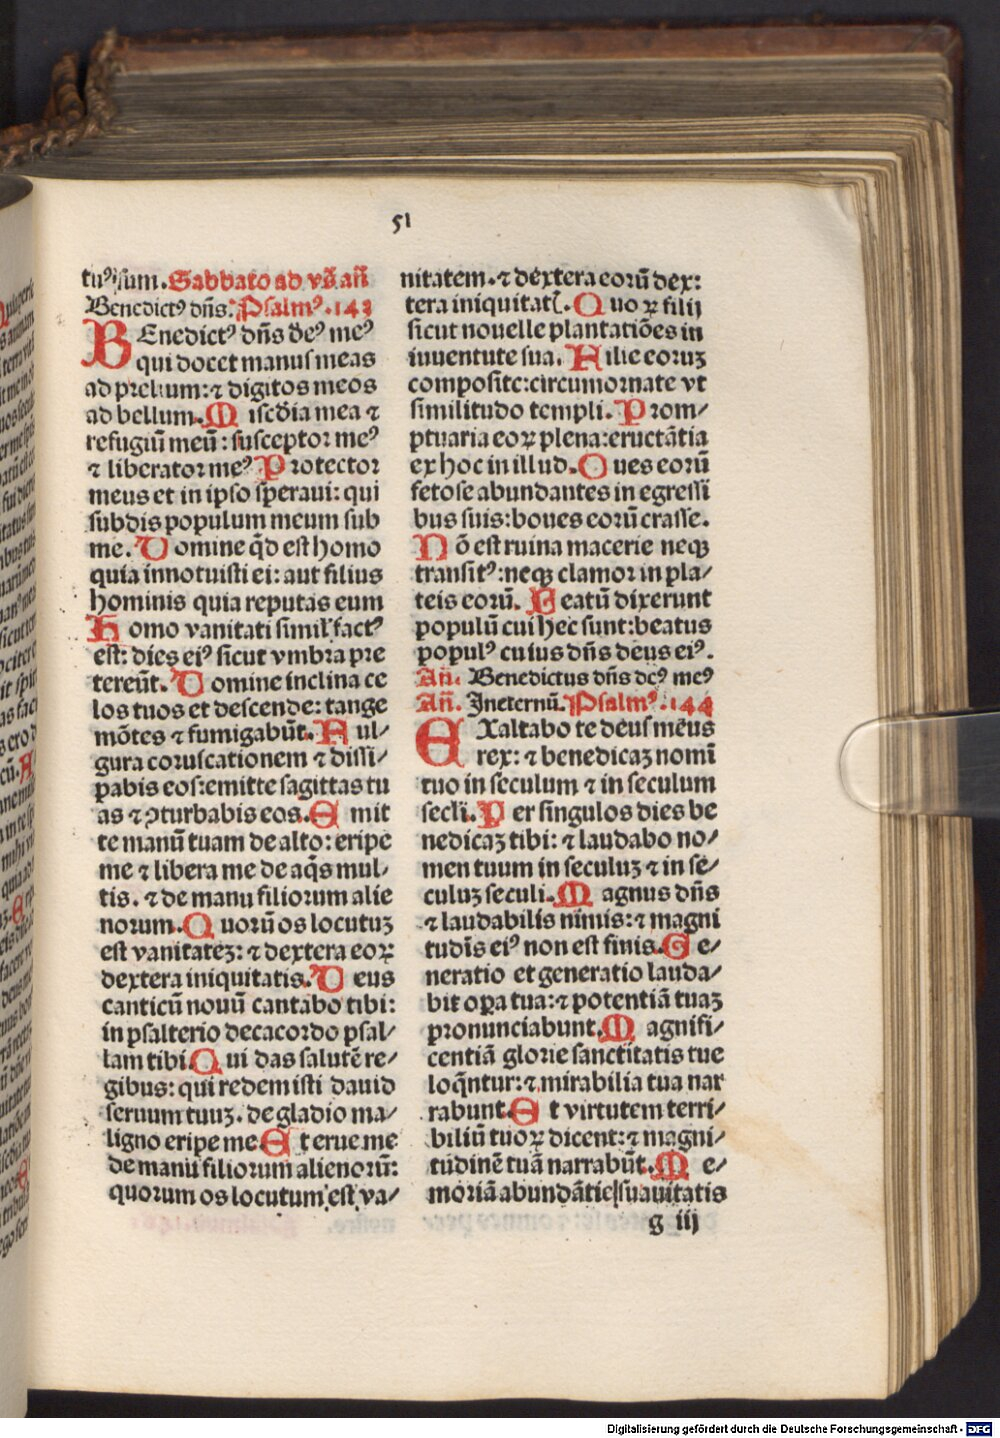 51
tuꝰ sum. Sabbato ad vr̃s añ
Benedictꝰ dñs. Psalmꝰ .143
BEnedictꝰ dñs deꝰ meꝰ
qui docet manus meas
ad prelium: ⁊ digitos meos
ad bellum. Misc̃dia mea ⁊
refugiũ meũ: susceptor meꝰ
⁊ liberator meꝰ Protector
meus et in ipso speraui: qui
subdis populum meum sub
me. Domine q̃d est homo
quia innotuisti ei: aut filius
hominis quia reputas eum
Homo vanitati simil' factꝰ
est: dies eiꝰ sicut vmbra pre
tereũt. Domine inclina ce
los tuos et descende: tange
mõtes ⁊ fumigabũt. Ful⸗
gura coruscationem ⁊ dissi⸗
pabis eos: emitte sagittas tu
as ⁊ ꝯturbabis eos. Emit
te manũ tuam de alto: eripe
me ⁊ libera me de aq̃s mul⸗
tis. ⁊ de manu filiorum alie
norum. Quorũ os locutuꝫ
est vanitateꝫ: ⁊ dextera eoꝝ:
dextera iniquitatis. Deus
canticũ nouũ cantabo tibi:
in psalterio decacordo psal⸗
lam tibi Qui das salutẽ re⸗
gibus: qui redemisti dauid
seruum tuuꝫ. de gladio ma⸗
ligno eripe me Et erue me
de manu filiorum alienorũ:
quorum os locutum est va⸗
nitatem. ⁊ dextera eorũ dex:
tera iniquitat. Quoꝝ filij
sicut nouelle plantatiões in
iuuentute sua. Filie eoruꝫ
composite: circumornate vt
similitudo templi. Prom⸗
ptuaria eoꝝ plena: eructãtia
ex hoc in illud. Oues eorũ
fetose abundantes in egressi
bus suis: boues eorũ crasse.
Nõ est ruina macerie neqꝫ
transitꝰ: neqꝫ clamor in pla⸗
teis eorũ. Beatũ dixerunt
populũ cui hec sunt: beatus
populꝰ cuius dñs deus eiꝰ.
Añ. Benedictus dñs deꝰ meꝰ
Añ. Ineternũ. Psalmꝰ .144
EXaltabo te deus meus
rex: ⁊ benedicaꝫ nomĩ
tuo in seculum ⁊ in seculum
secli. Per singulos dies be
nedicaꝫ tibi: ⁊ laudabo no⸗
men tuum in seculuꝫ ⁊ in se⸗
culuꝫ seculi. Magnus dñs
⁊ laudabilis nimis: ⁊ magni
tudĩs eiꝰ non est finis. Ge⸗
neratio et generatio lauda⸗
bit oꝑa tua: ⁊ potentiã tuaꝫ
pronunciabunt. Magnifi⸗
centiã glorie sanctitatis tue
loq̃ntur: ⁊ mirabilia tua nar
rabunt. Et virtutem terri⸗
biliũ tuoꝝ dicent: ⁊ magni⸗
tudinẽ tuã narrabũt. Me⸗
moriã abundãtie suauitatis
g iij
Digitalisierung gefördert durch die Deutsche Forschungsgemeinschaft - DFG